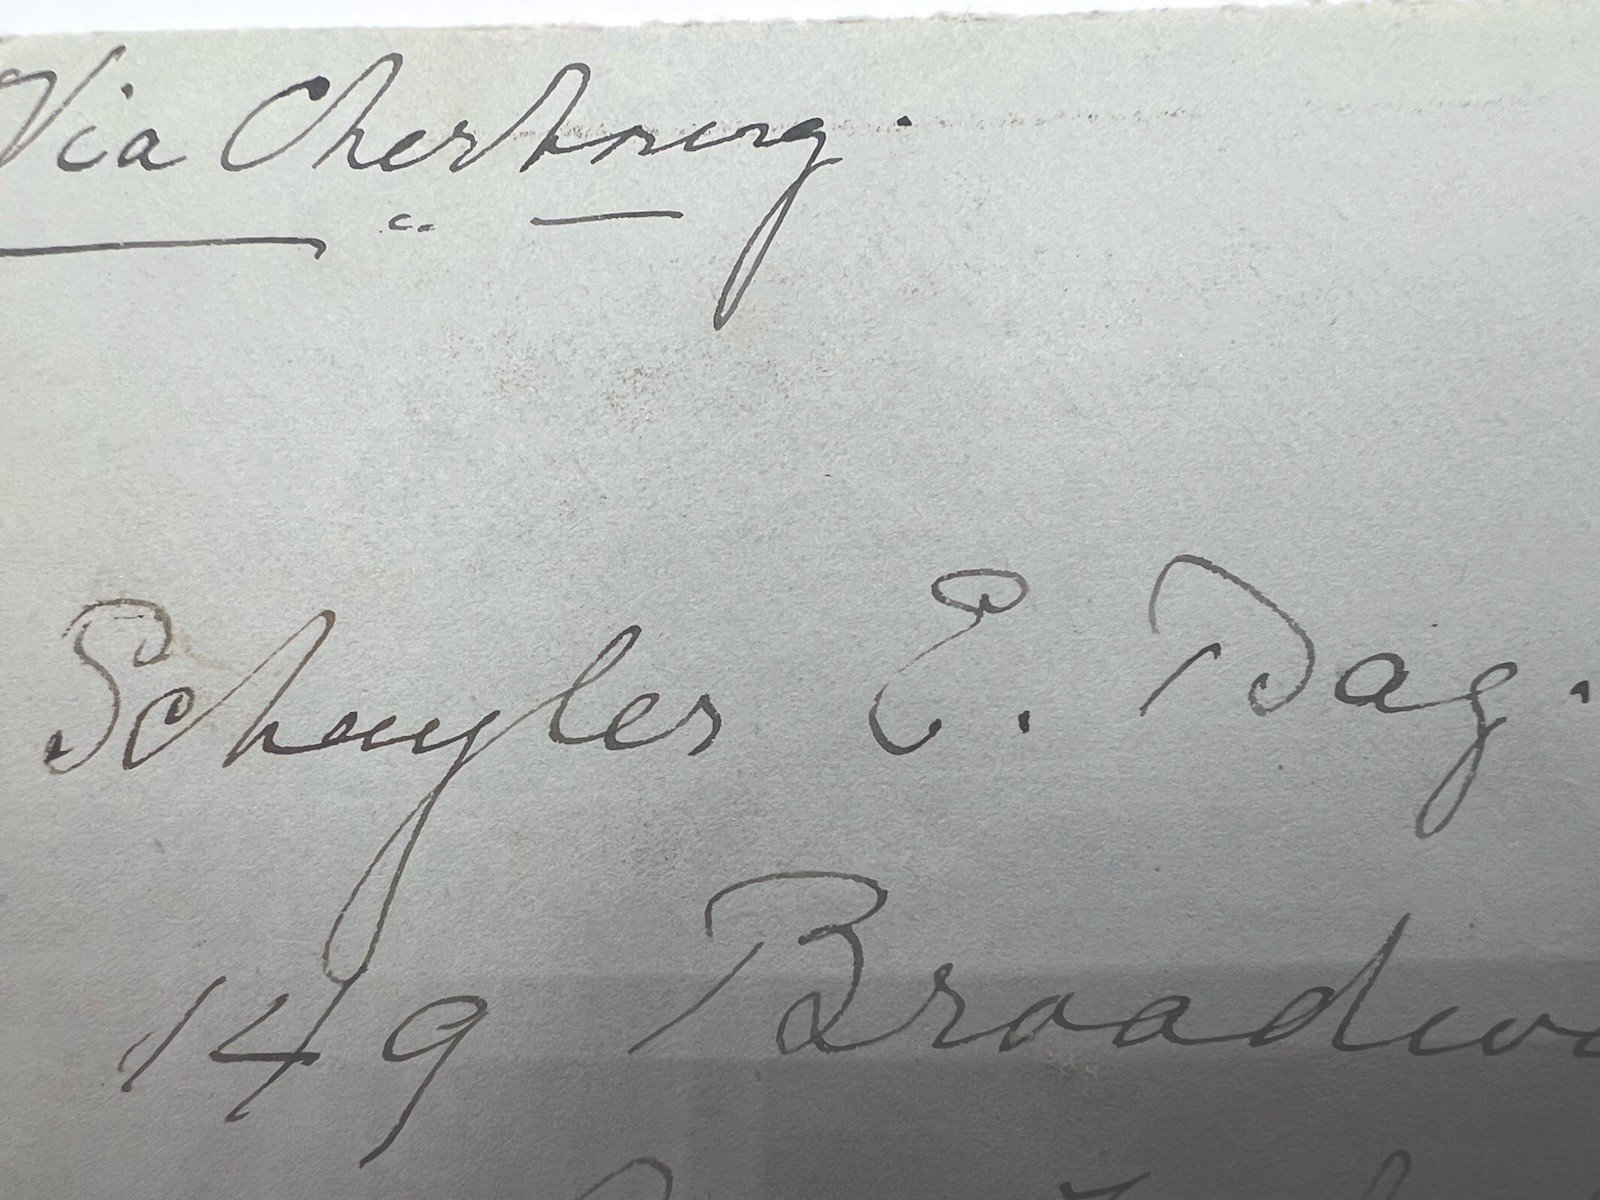 Via Cherbourg.
Schuyler E. Day.
149 Broadwa